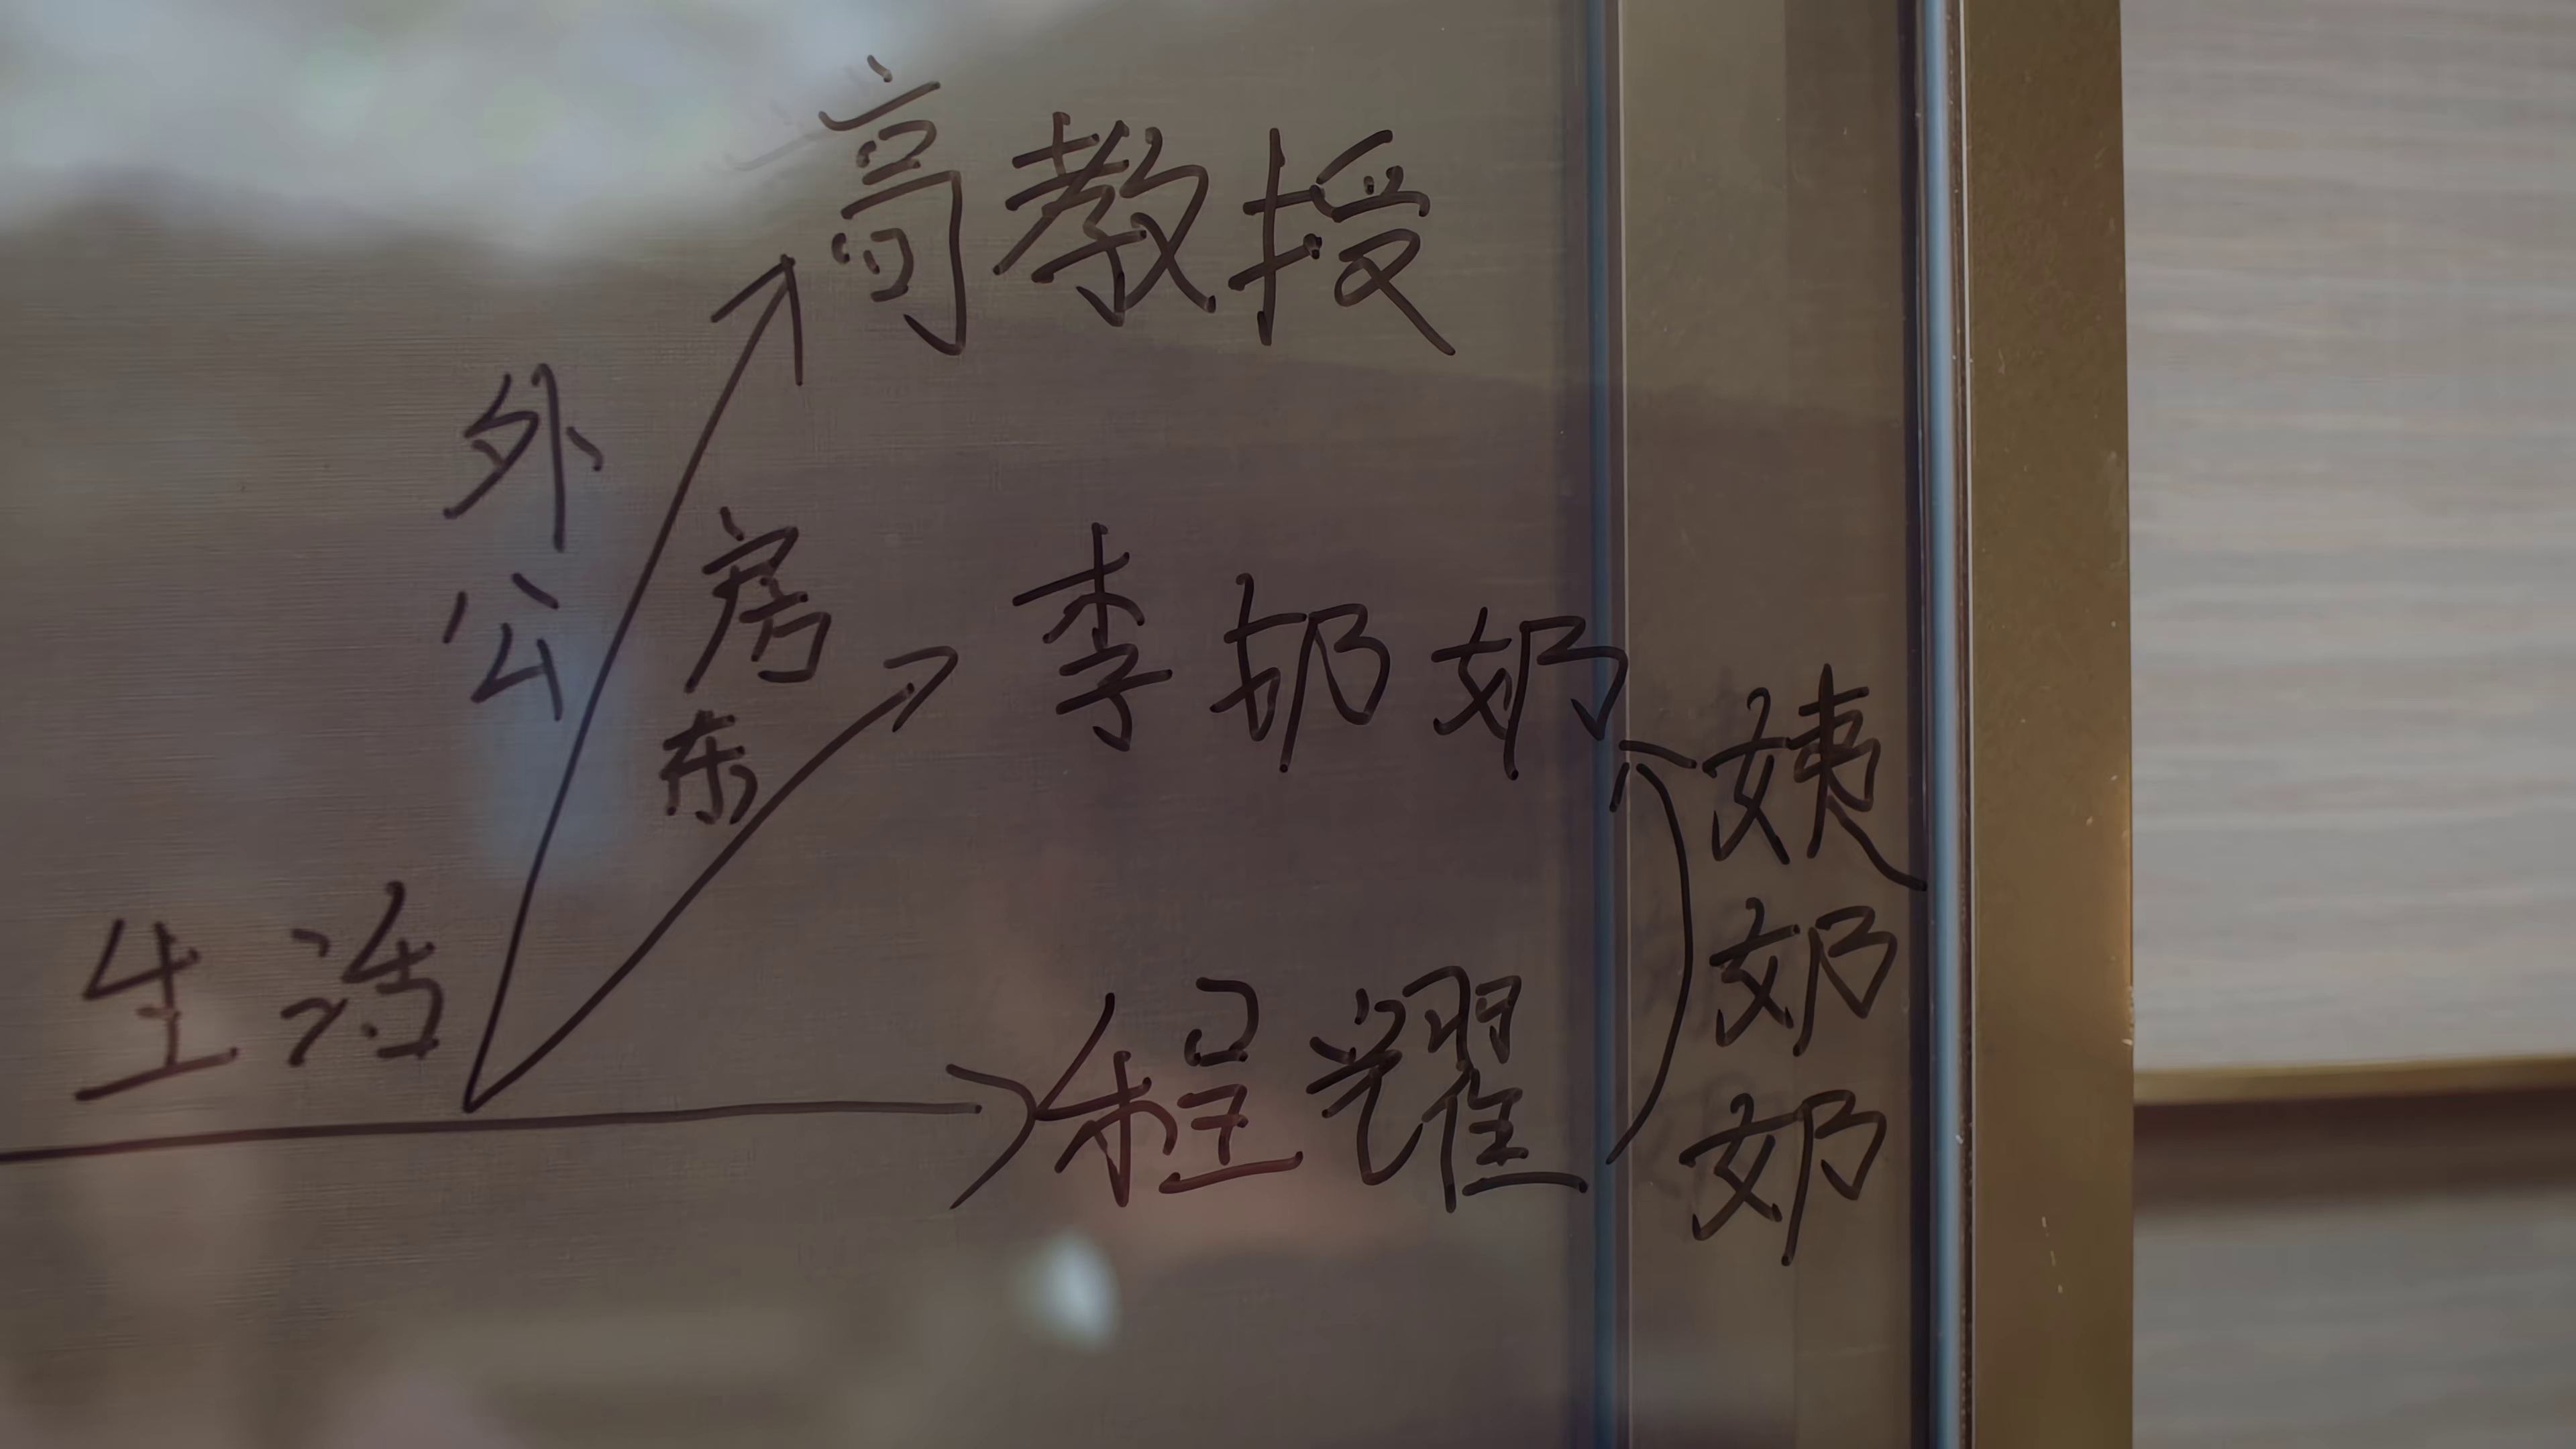 高教授
外公
房东
李奶奶
姨奶奶
生活
程耀